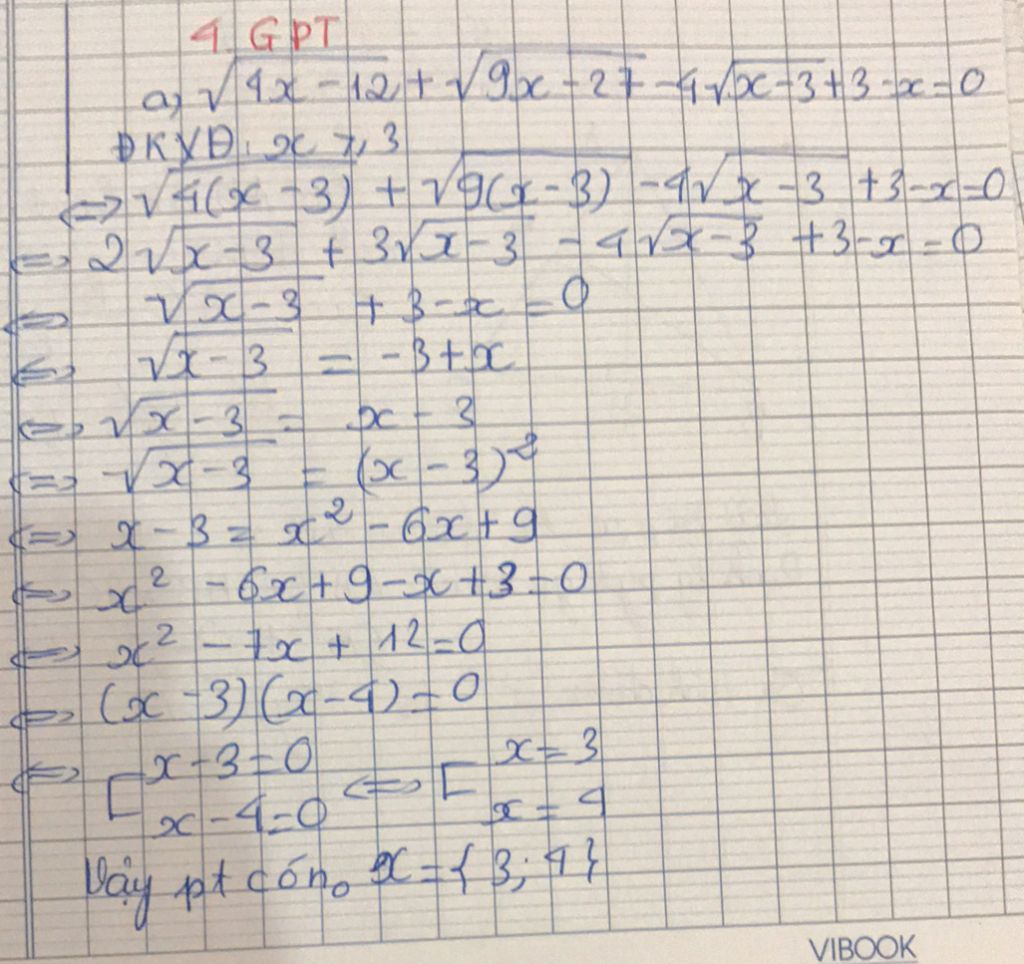 4 GPT
a) √(4x-12) + √(9x-27) -4√(x-3) +3-x=0
ĐKXĐ: x ≥ 3
<=> √(4(x-3)) + √(9(x-3)) -4√(x-3) +3-x=0
<=> 2√(x-3) + 3√(x-3) -4√(x-3) +3-x=0
<=> √(x-3) +3-x=0
<=> √(x-3) = -3+x
<=> √(x-3) = x-3
<=> √(x-3) = (x-3)²
<=> x-3 = x² -6x+9
<=> x² -6x+9-x+3=0
<=> x² -7x+12=0
<=> (x-3)(x-4)=0
<=> [ x-3=0 <=> [ x=3
x-4=0 x=4
Vậy pt có no x={3; 4}
VIBOOK